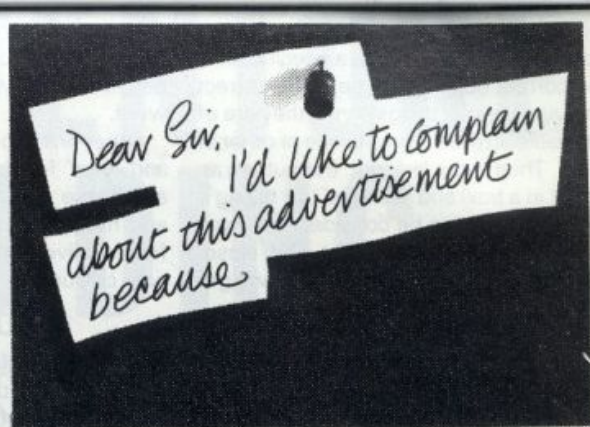 Dear Sir,
I'd like to complain
about this advertisement
because